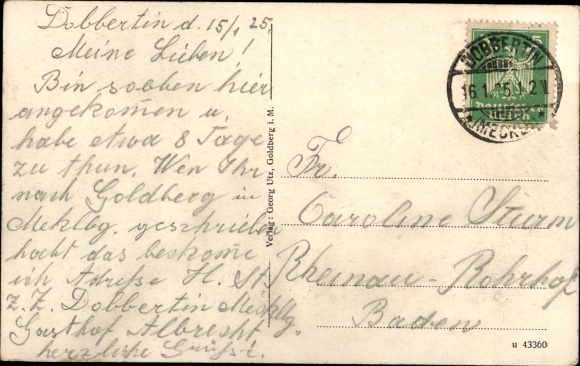 Dobbertin d. 15/1 25.
Meine Lieben!
Bin soeben hier
angekommen u.
habe etwa 8 Tage
zu thun. Wen Ihr
nach Goldberg in
Meklbg. geschrieben
habt das bekome
ich Adresse H. St.
z. Z. Dobbertin Mecklbg
Gasthof Albrecht
herzliche Grüsse.
Verlag: Georg Utz, Goldberg i. M.
DOBBERTIN
16.1.25.1-2N
(MECKL)
5
Fr.
Caroline Sturm
Rheinau-Rohrhof
Baden
u 43360